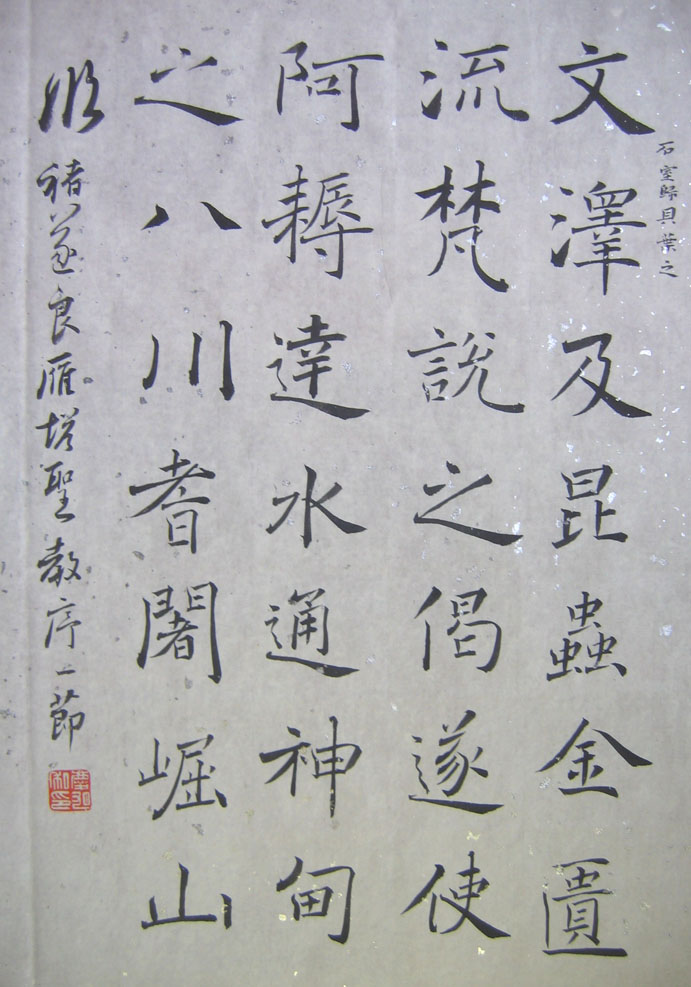 石室歸貝葉之
文澤及昆蟲金匱
流梵說之偈遂使
阿耨達水通神甸
之八川耆闍崛山
臨褚遂良雁塔聖教序一節